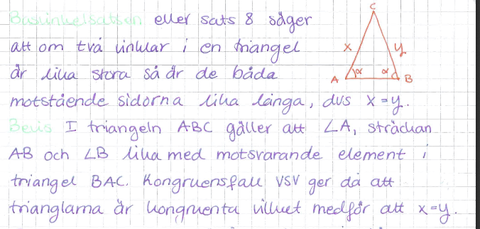 Basvinkelsatsen eller sats 8 säger
att om två vinklar i en triangel
är lika stora så är de båda
motstående sidorna lika långa, dvs x=y.
Bevis I triangeln ABC gäller att ∠A, sträckan
AB och ∠B lika med motsvarande element i
triangel BAC. Kongruensfall VSV ger då att
trianglarna är kongruenta vilket medför att x=y.
C
x y
A α α B